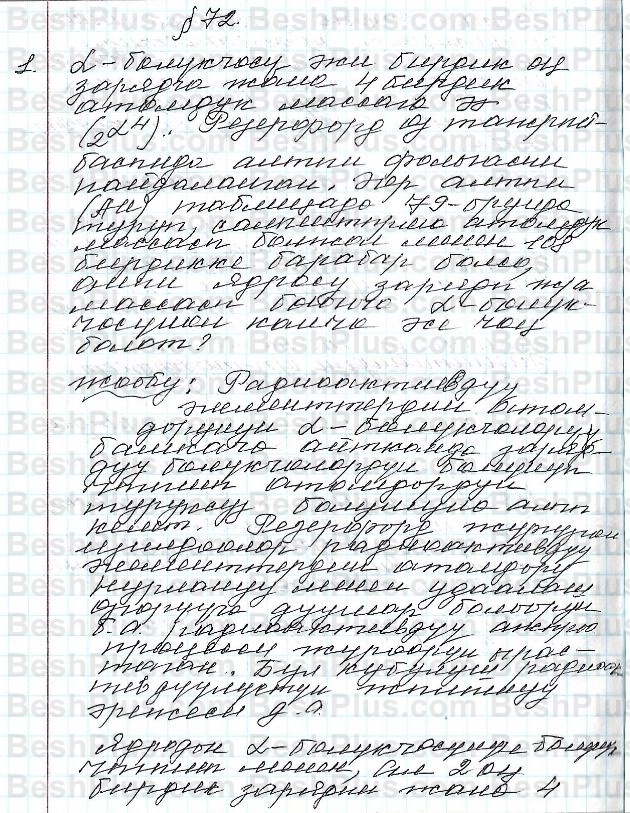 § 72.
1. α-бөлүкчөсү эки бирдик оң
зарядга жана 4 бирдик
атомдук массага ээ
(₂α⁴). Резерфорд өз тажрый-
басында алтын фольгасын
пайдаланган. Эгер алтын
(Au) таблицада 79-орунда
туруп, салыштырма атомдук
массасы болжол менен 108
бирдикке барабар болсо,
анын ядросу заряды жа
массасы боюнча α-бөлүк-
чөсүнөн канча эсе чоң
болот?
Жообу: Радиоактивдүү
элементтердин атом-
дорунун α-бөлүкчөлөрдү
башкача айтканда заряд-
дуу бөлүкчөлөрдүн бөлүнүп
чыгышы атомдордун
туруксуз болушуна алып
келет. Резерфорд жүргүзгөн
изилдөөлөр радиоактивдүү
элементтердин атомдору
нурлануу менен удаалаш
өзгөрүүгө дуушар болоорун
б.а. радиоактивдүү ажыроо
процесси жүрөөрүн ырас-
таган. Бул кубулуш радиоак
тивдүүлүктүн жылышуу
эрежеси д.а.
Ядродон α-бөлүкчөсүнө бөлүнүп
чыгышы менен, ал 2 оң
бирдик зарядын жана 4